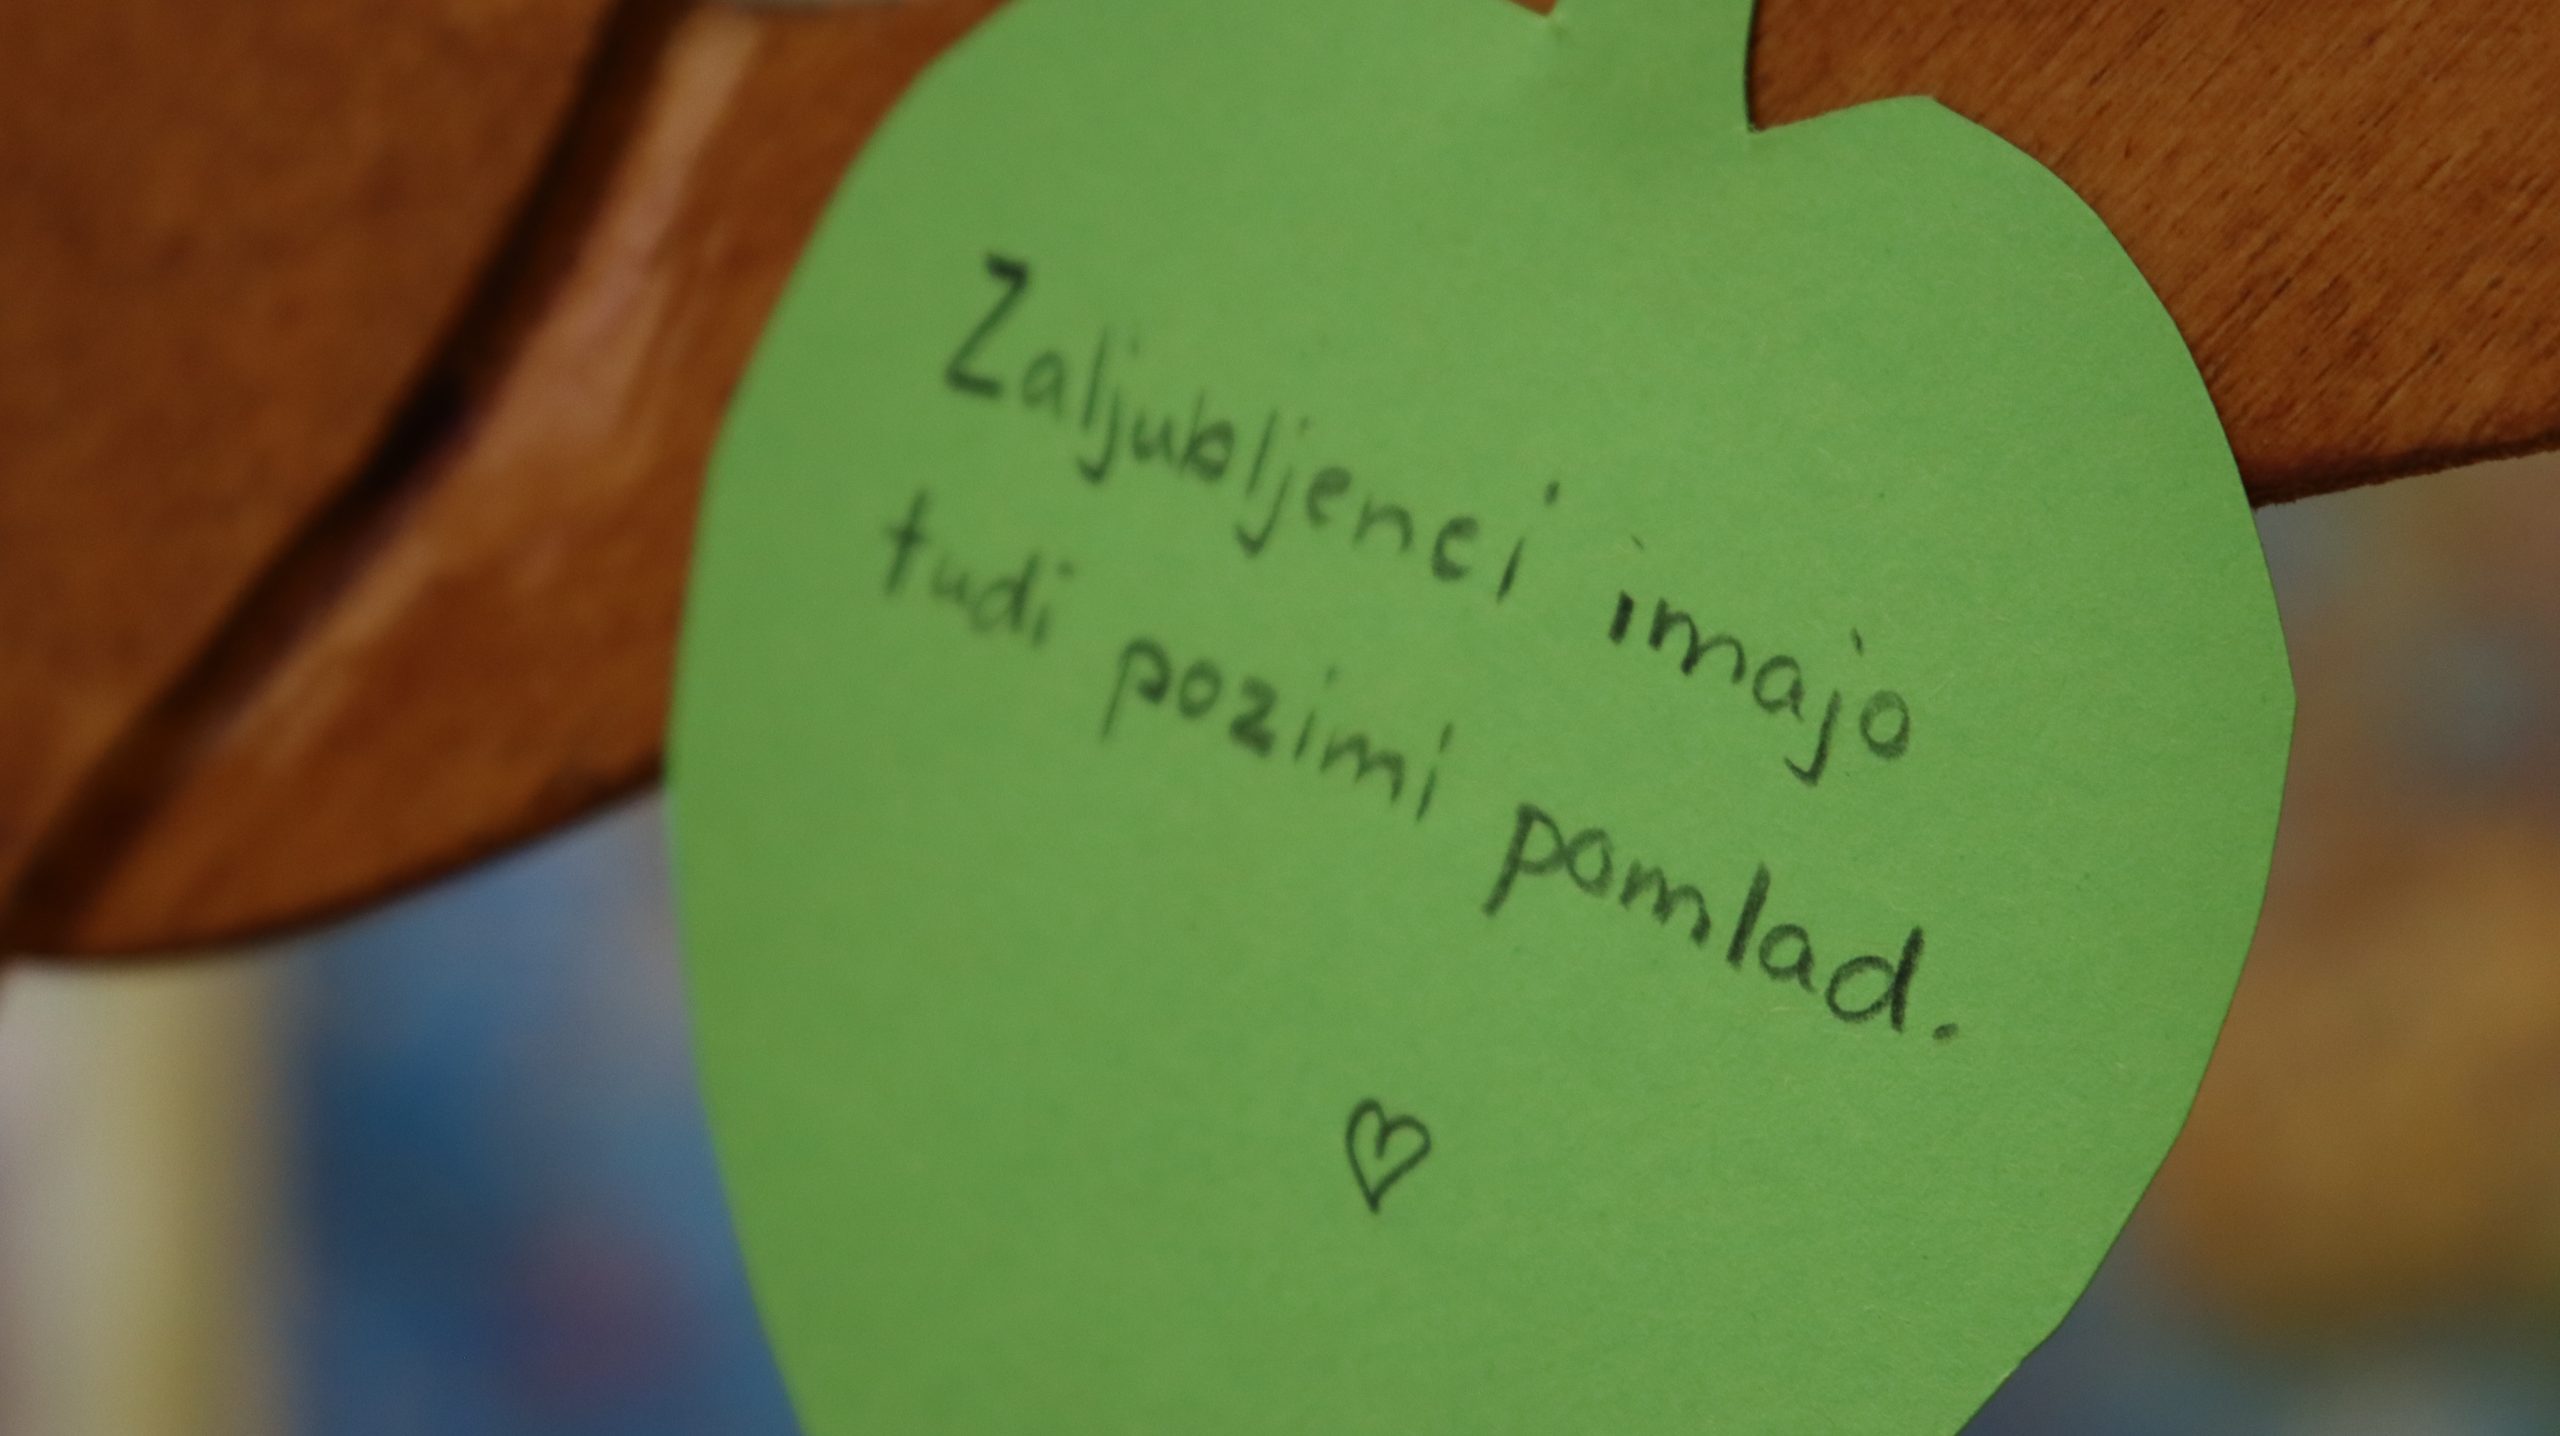 Zaljubljenci imajo
tudi pozimi pomlad.
♡